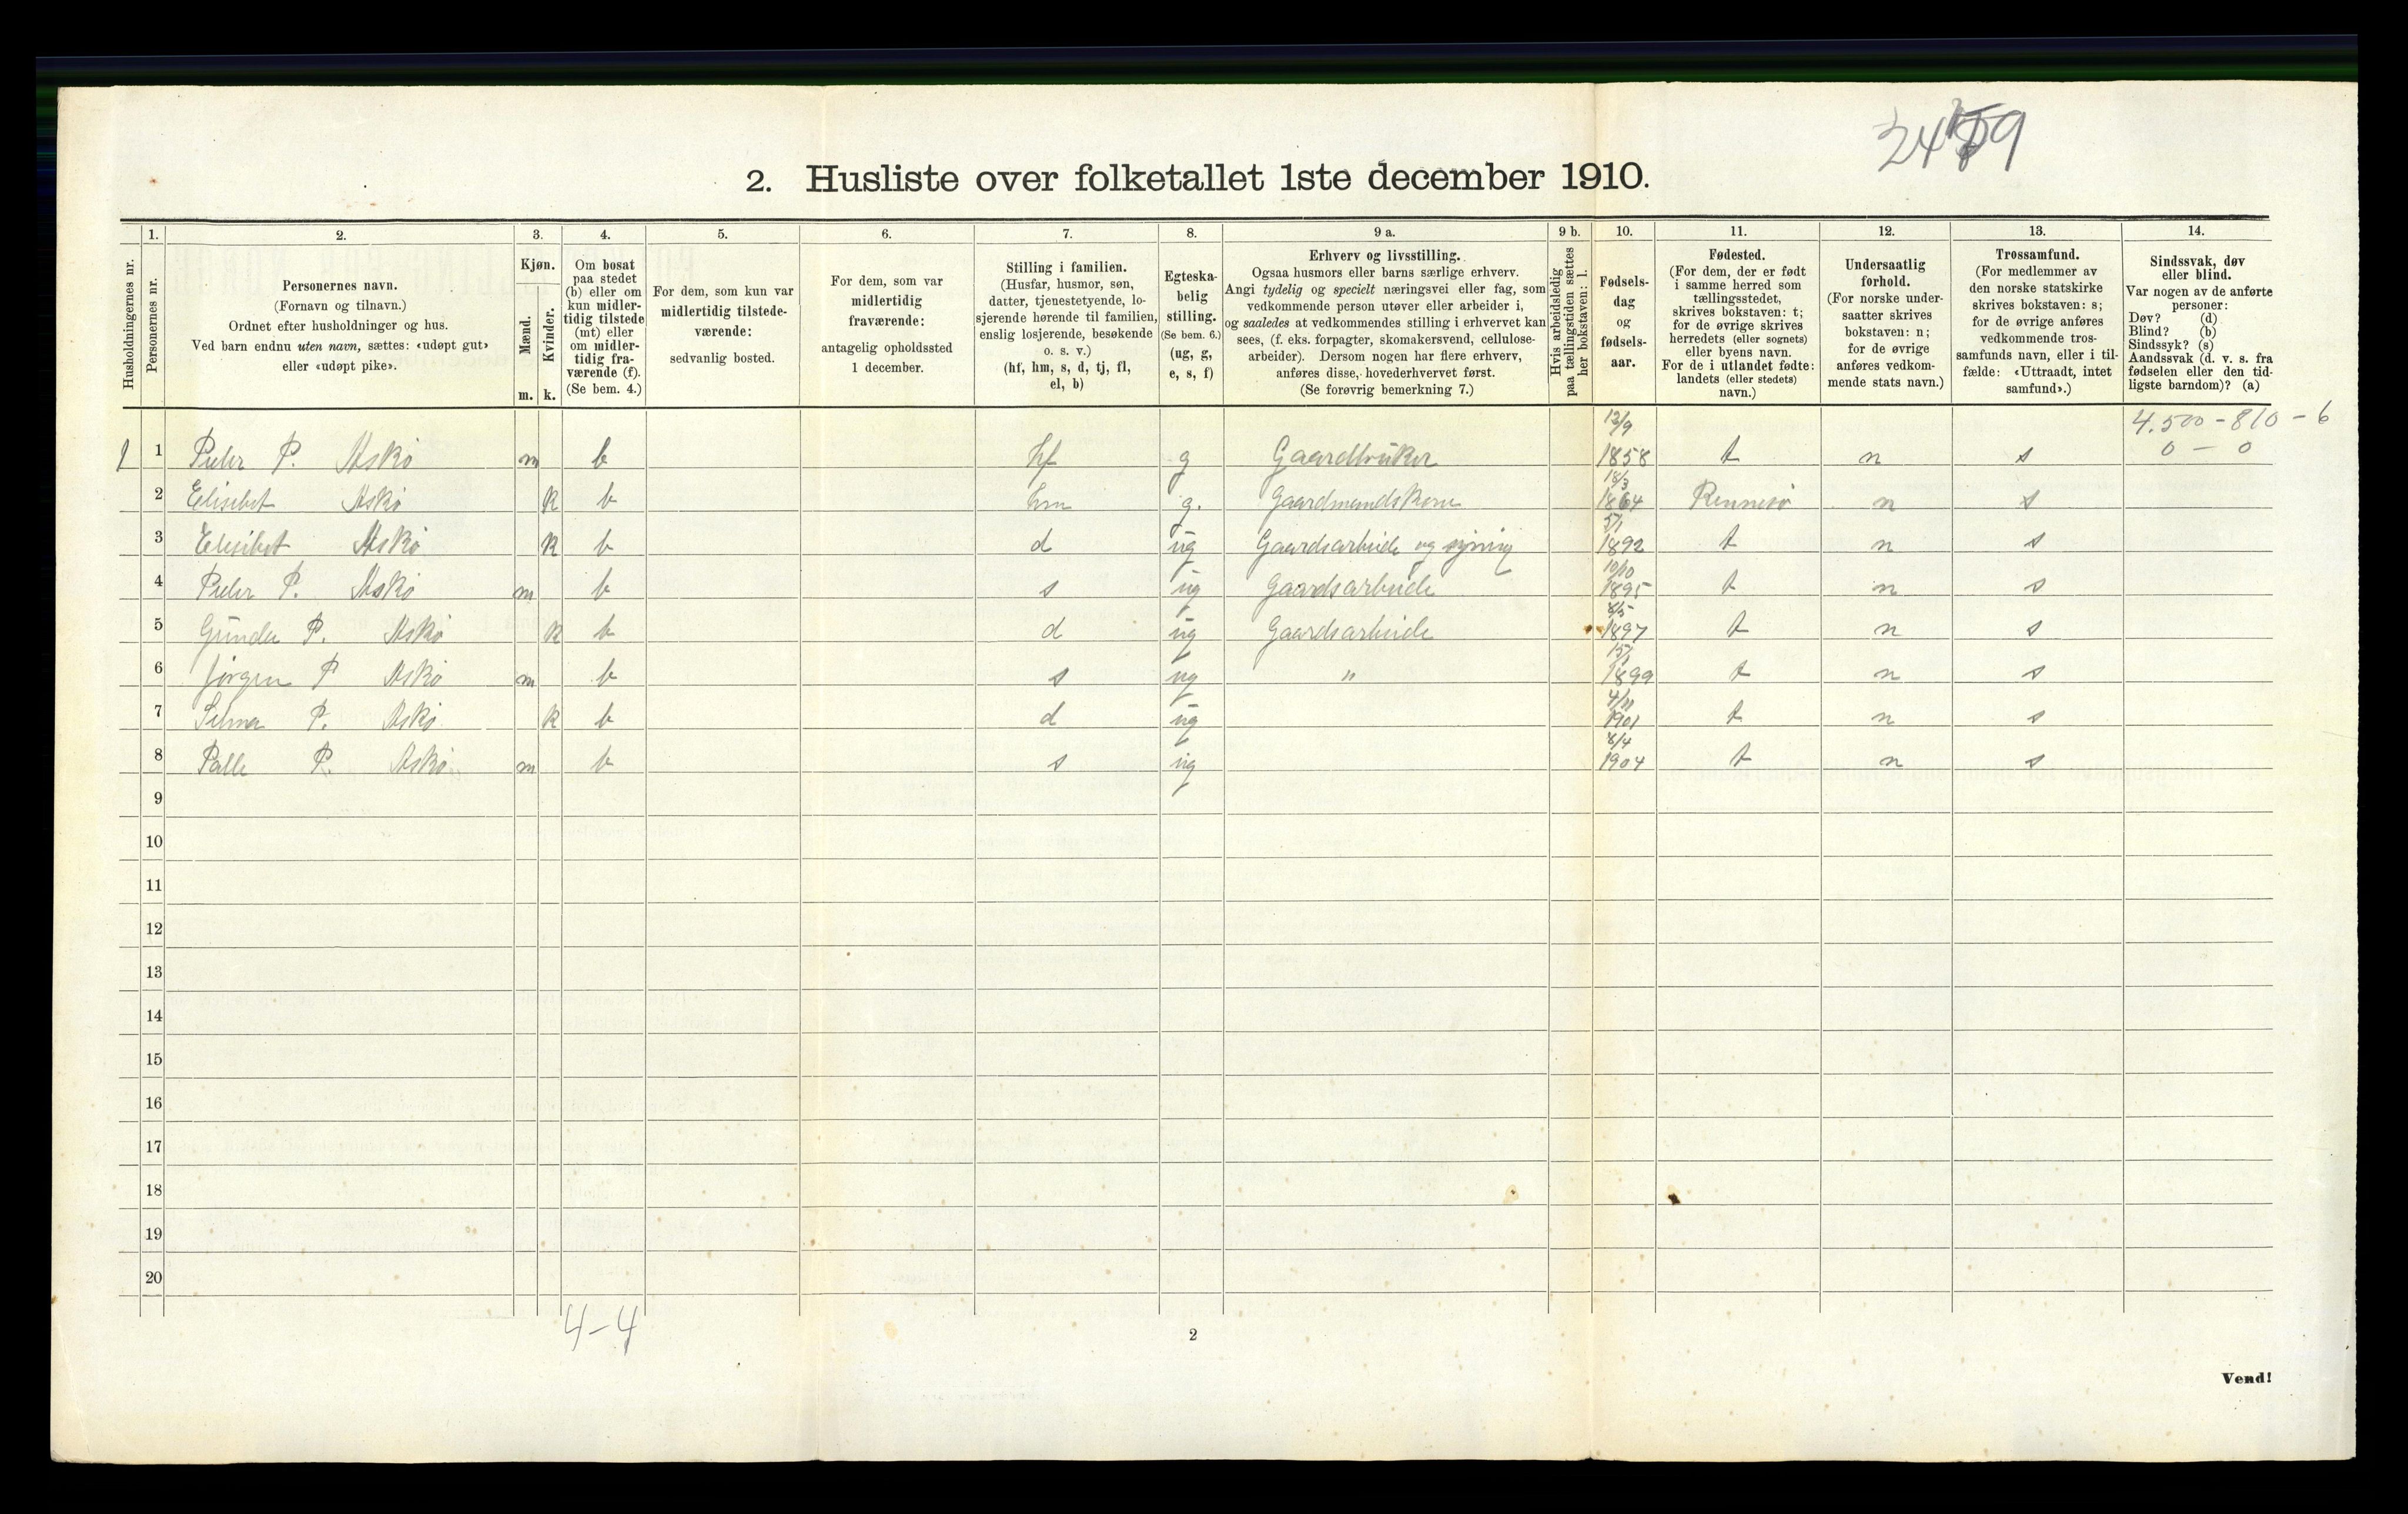 2. Husliste over folketallet 1ste december 1910.
1. 2. 3. 4. 5. 6. 7. 8. 9 a. 9 b. 10. 11. 12. 13. 14.
Husholdningernes nr.
Personernes nr.
Personernes navn.
(Fornavn og tilnavn.)
Ordnet efter husholdninger og hus.
Ved barn endnu uten navn, sættes: «udøpt gut»
eller «udøpt pike».
Kjøn.
Mænd.
Kvinder.
m. k.
Om bosat
paa stedet
(b) eller om
kun midler-
tidig tilstede
(mt) eller
om midler-
tidig fra-
værende (f).
(Se bem. 4.)
For dem, som kun var
midlertidig tilstede-
værende:
sedvanlig bosted.
For dem, som var
midlertidig
fraværende:
antagelig opholdssted
1 december.
Stilling i familien.
(Husfar, husmor, søn,
datter, tjenestetyende, lo-
sjerende hørende til familien,
enslig losjerende, besøkende
o. s. v.)
(hf, hm, s, d, tj, fl,
el, b)
Egteska-
belig
stilling.
(Se bem. 6.)
(ug, g,
e, s, f)
Erhverv og livsstilling.
Ogsaa husmors eller barns særlige erhverv.
Angi tydelig og specielt næringsvei eller fag, som
vedkommende person utøver eller arbeider i,
og saaledes at vedkommendes stilling i erhvervet kan
sees, (f. eks. forpagter, skomakersvend, cellulose-
arbeider). Dersom nogen har flere erhverv,
anføres disse, hovederhvervet først.
(Se forøvrig bemerkning 7.)
Hvis arbeidsledig
paa tællingstiden sættes
her bokstaven: l.
Fødsels-
dag
og
fødsels-
aar.
Fødested.
(For dem, der er født
i samme herred som
tællingsstedet,
skrives bokstaven: t;
for de øvrige skrives
herredets (eller sognets)
eller byens navn.
For de i utlandet fødte:
landets (eller stedets)
navn.)
Undersaatlig
forhold.
(For norske under-
saatter skrives
bokstaven: n;
for de øvrige
anføres vedkom-
mende stats navn.)
Trossamfund.
(For medlemmer av
den norske statskirke
skrives bokstaven: s;
for de øvrige anføres
vedkommende tros-
samfunds navn, eller i til-
fælde: «Uttraadt, intet
samfund».)
Sindssvak, døv
eller blind.
Var nogen av de anførte
personer:
Døv? (d)
Blind? (b)
Sindssyk? (s)
Aandssvak (d. v. s. fra
fødselen eller den tid-
ligste barndom)? (a)
4.500 - 810 - 6
0 - 0
1 1 Peder P. Askø m b hf g Gaardbruker 12/9 1858 t n s
2 Elisebet Askø k b hm g. Gaardmandskone 18/3 1864 Rennesø n s
3 Elisibet Askø k b d ug Gaardsarbeide og syning 5/1 1892 t n s
4 Peder P. Askø m b s ug Gaardsarbeide 10/10 1895 t n s
5 Gunda P. Askø k b d ug Gaardsarbeide 8/5 1897 t n s
6 Jørgen P Askø m b s ug " 1899 t n s
7 Selma P. Askø k b d ug 4/11 1901 t n s
8 Palle P. Askø m b s ug 8/4 1904 t n s
9
10
11
12
13
14
15
16
17
18
19
20
4-4
2
Vend!